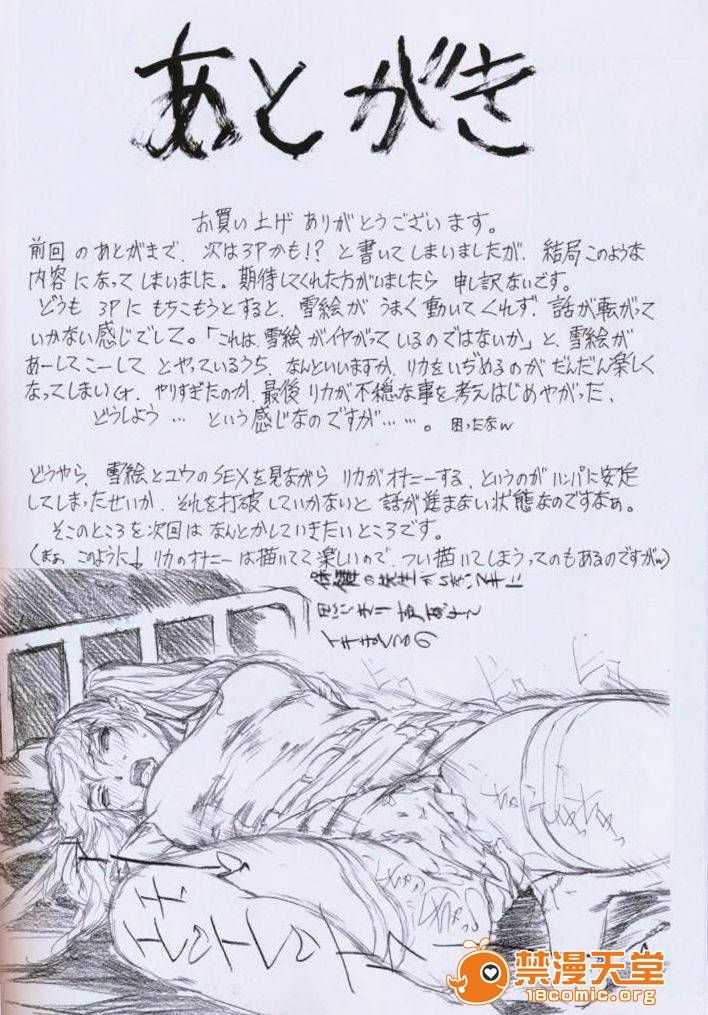 あとがき
お買い上げ ありがとうございます。
前回のあとがきで、次は3Pかも!? と書いてしまいましたが、結局このような
内容になってしまいました。期待してくれた方がいましたら 申し訳ないです。
どうも 3Pに もちこもうとすると、雪絵が うまく動いてくれず、話が転がって
いかない感じでして。「これは、雪絵がイヤがっているのではないか」と、雪絵が
あーしてこーして とやっているうち、なんといいますか、リカをいぢめるのが だんだん楽しく
なってしまい、やりすぎたのか、最後 リカが不穏な事を考えはじめやがった、
どうしよう … という感じなのですが……。困ったなw
どうやら、雪絵とユウのSEXを見ながら リカがオナニーする、というのが ハンパに安定
してしまったせいか、それを打破していかないと 話が進まない状態なのですなぁ。
そこのところを次回は なんとかしていきたいところです。
(まぁ このように↓ リカのオナニーは描いてて楽しいので、つい描いてしまうってのもあるのですがw)
禁漫天堂
18comic.org